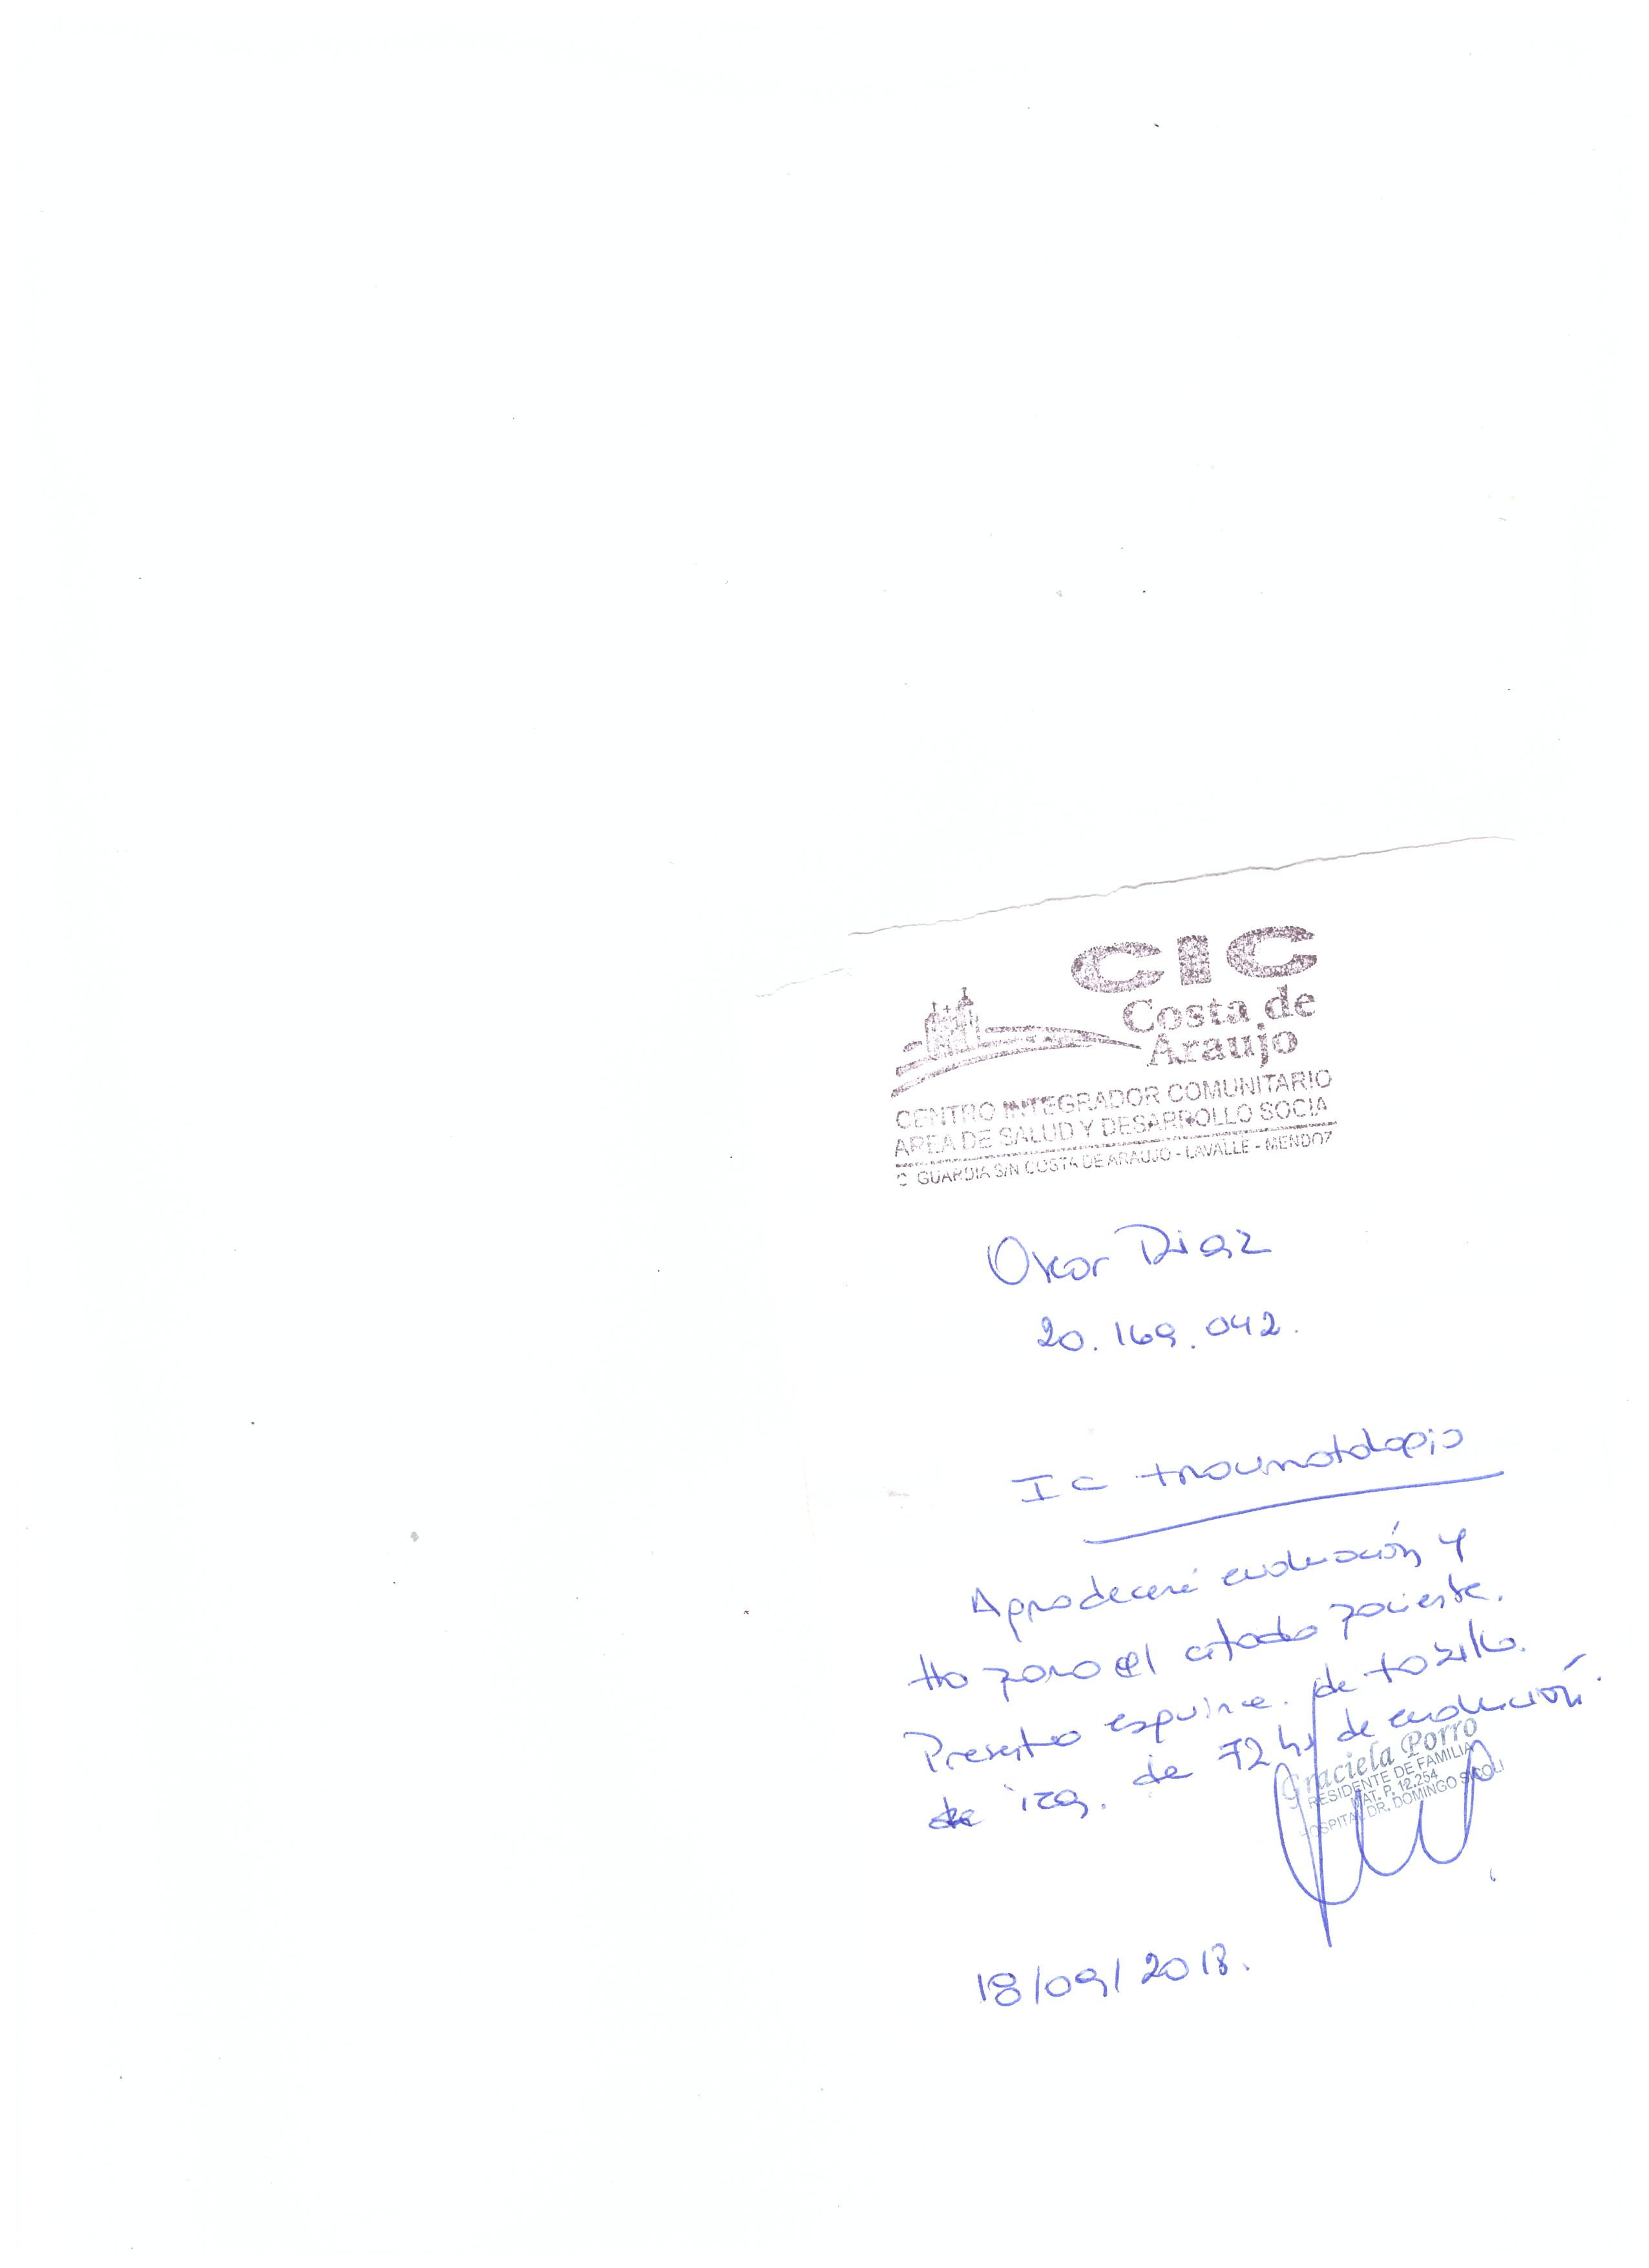 CIC
Costa de
Araujo
CENTRO INTEGRADOR COMUNITARIO
AREA DE SALUD Y DESARROLLO SOCIA
C GUARDIA S/N COSTA DE ARAUJO - LAVALLE - MENDOZ
Oscar Diaz
20.169.042.
IC traumatologia
Agradeceré evaluación y
tto para el citado paciente.
Presenta esguince. de tobillo.
de izq. de 72 hs de evolución.
Graciela Porro
RESIDENTE DE FAMILIA
MAT. P. 12.254
HOSPITAL DR. DOMINGO SICOLI
18/09/2018.